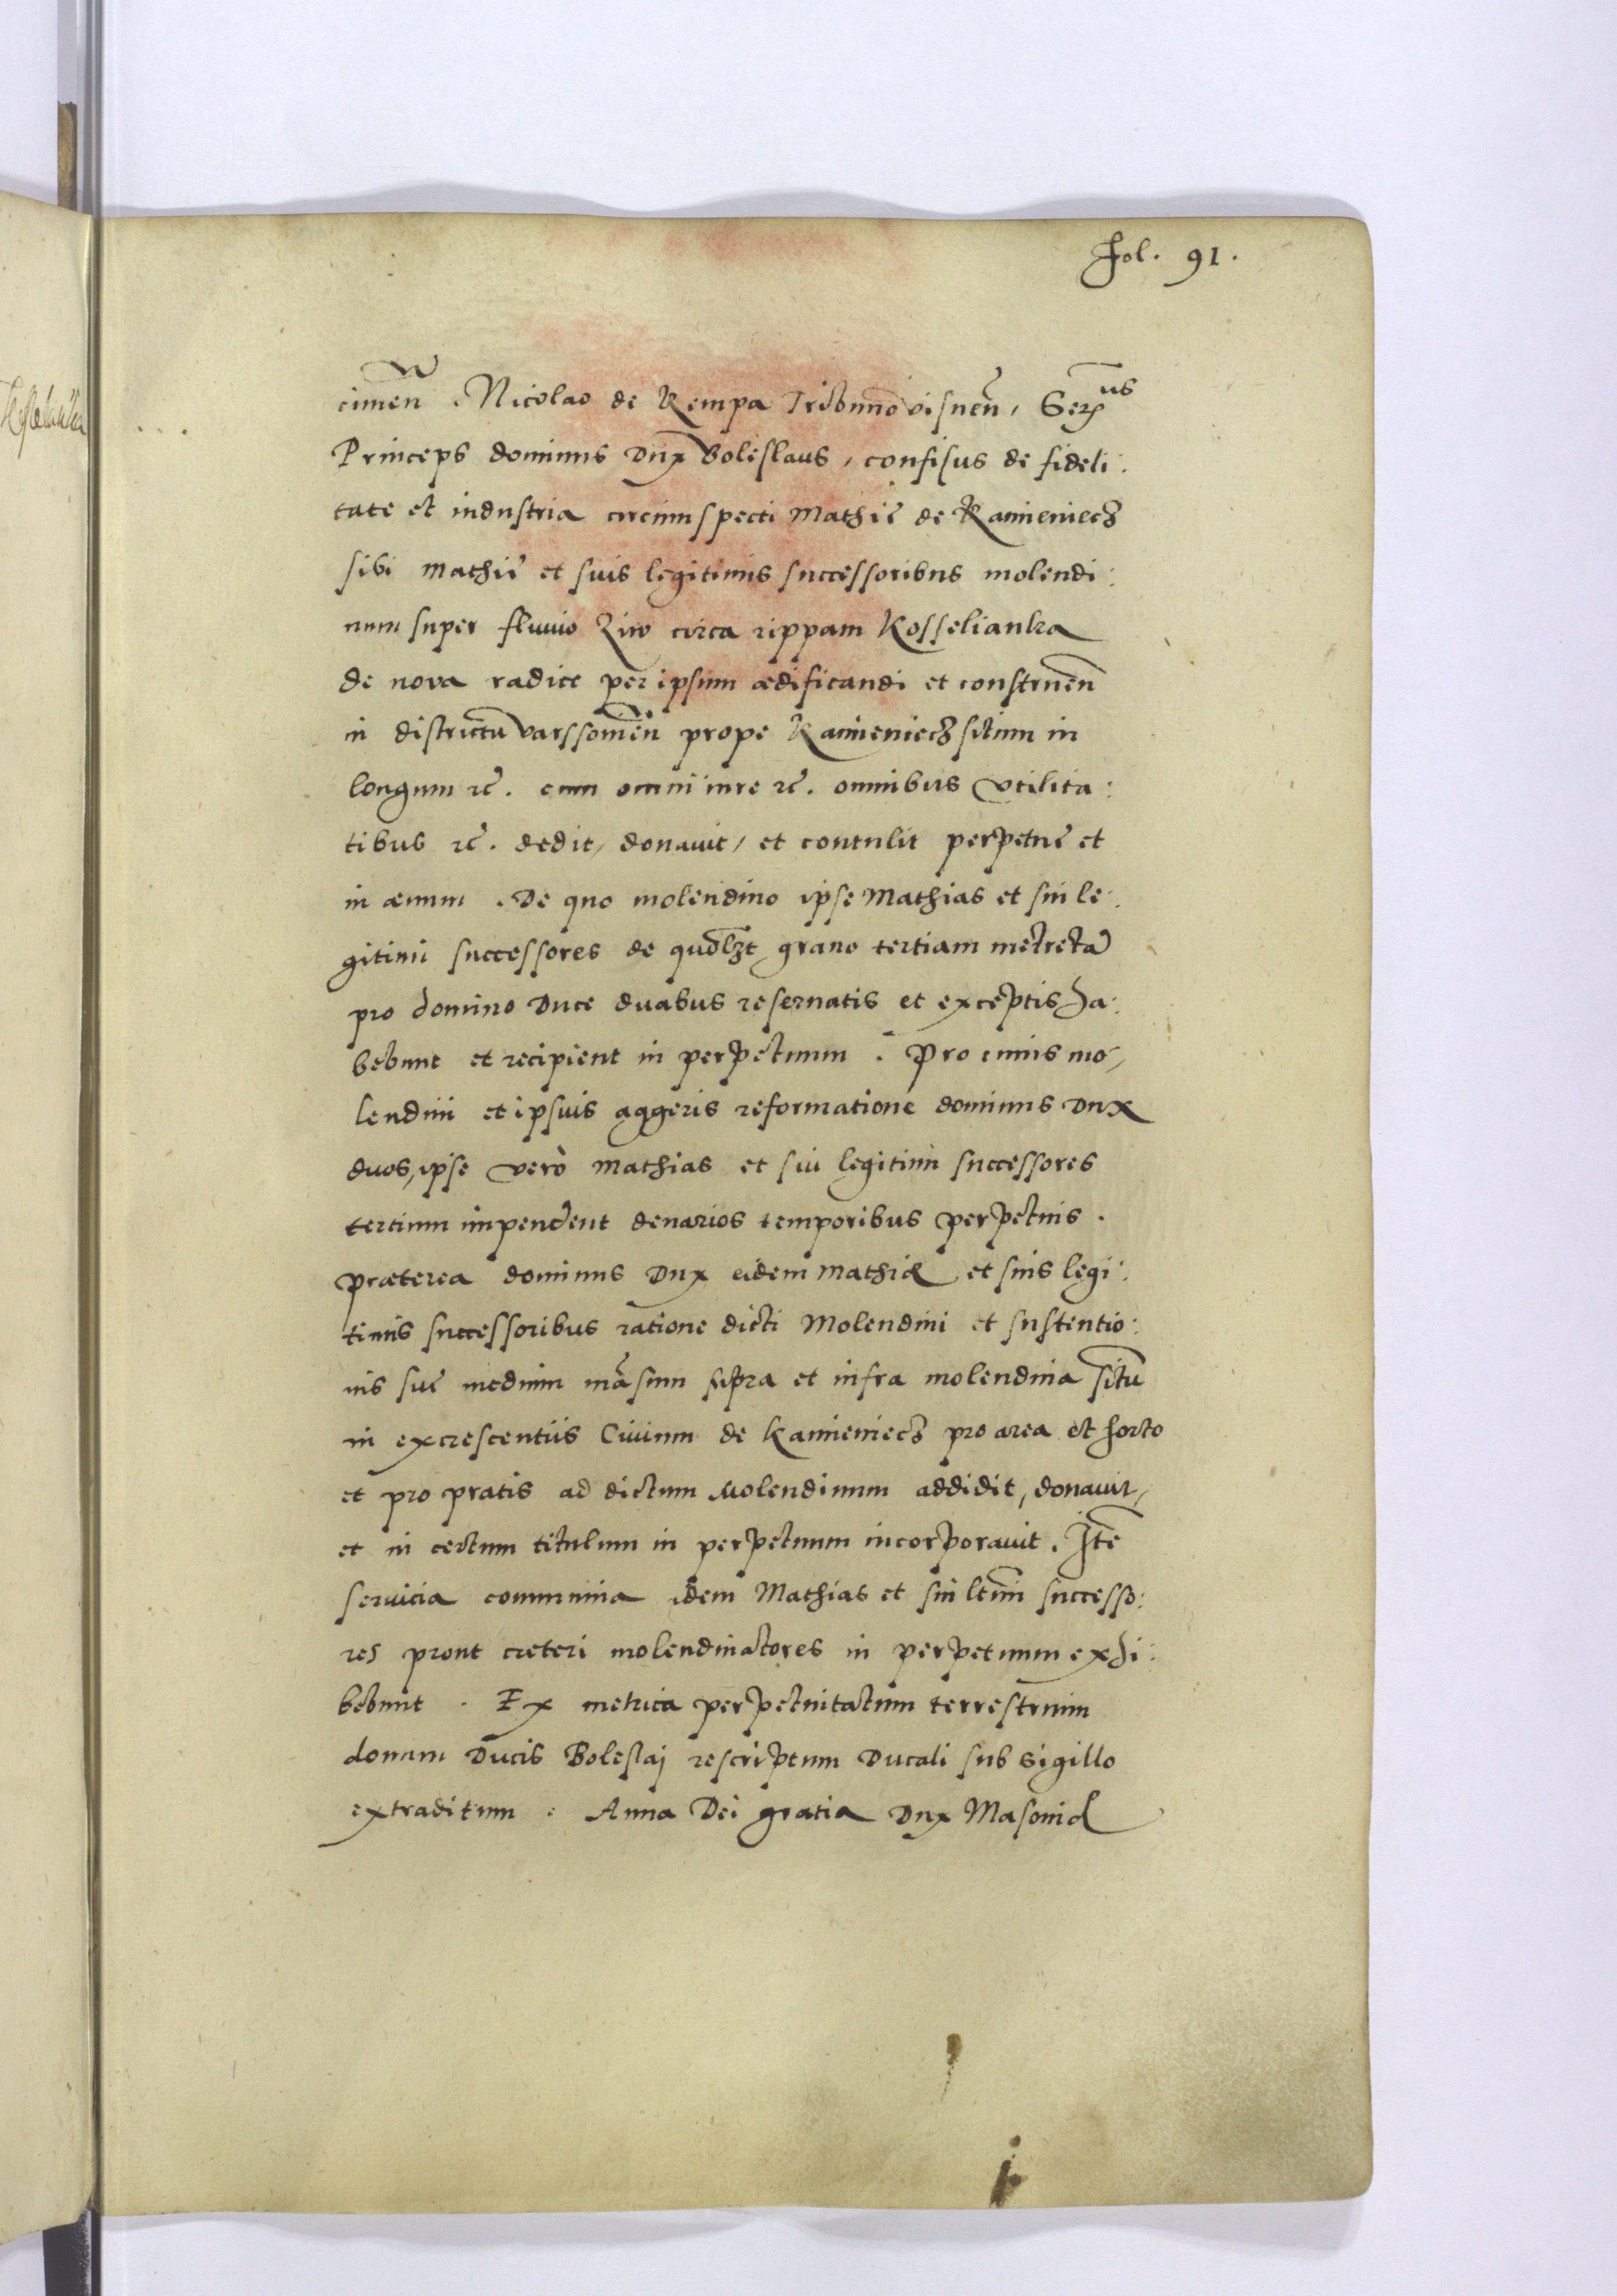 fol. 91.
cimen̄. Nicolao de Kempa Tribuno visnen̄, Serus
Princeps dominus Dux Boleslaus, confisus de fideli:
tate et industria circumspecti Mathie de Kamieniecz
sibi Mathie et suis legitimis successoribus molendi:
num super fluuio Ziw circa rippam Kosselianka
de nova radice per ipsum ædificandi et construen̄
in districtu varssouien̄ prope Kamieniecz situm in
longum rc̄. cum omni iure rc̄. omnibus vtilita:
tibus rc̄. dedit, donauit, et contulit perpetue et
in æuum. De quo molendino ipse Mathias et sui le:
gitimi successores de quolzt grano tertiam metretā
pro domino Duce duabus reseruatis et exceptis ha:
bebunt et recipient in perpetuum. Pro cuius mo,
lendini et ipsuis aggeris reformatione dominus Dux
duos, ipse verò Mathias et sui legitimi successores
tertium impendent denarios temporibus perpetuis.
præterea dominus Dux eidem Mathiæ et suis legi:
timis successoribus ratione dicti Molendini et sustentio:
nis sue medium māsum supra et infra molendina sitū
in excrescentiis Ciuium de Kamieniecz pro area et horto
et pro pratis ad dictum Molendinum addidit, donauit,
et in certum titulum in perpetuum incorporauit. Itē
seruicia communia idem Mathias et sui ltimi successo:
res prout cæteri molendinatores in perpetuum exhi:
bebunt. Ex metrica perpetuitatum terrestrium
donum Ducis Boleslaj rescriptum Ducali sub sigillo
extraditum. Anna Dei gratia Dux Masouiæ